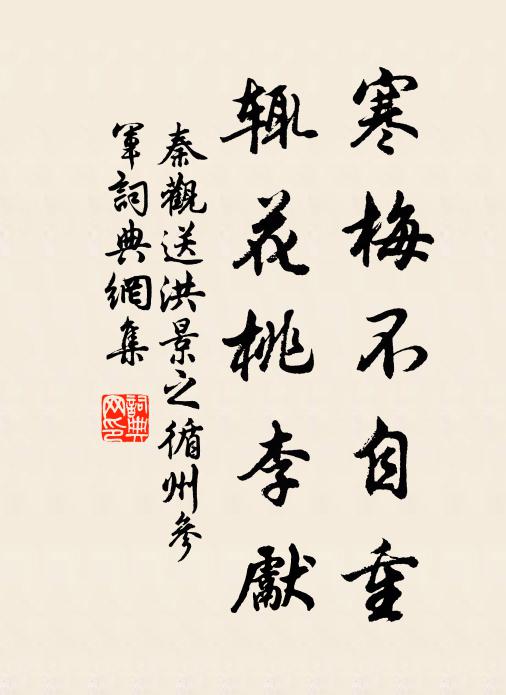 寒梅不自重
辄花桃李獻
秦觀送洪景之循州參
軍詞典網集
詞典
网印